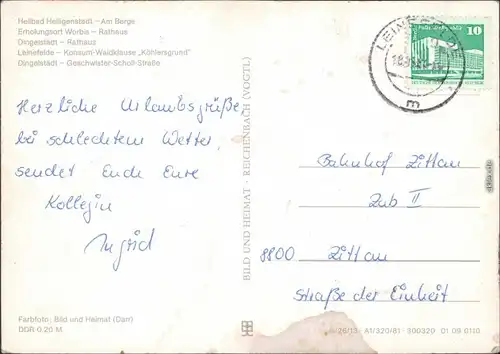 Heilbad Heiligenstadt – Am Berge
Erholungsort Worbis – Rathaus
Dingelstädt – Rathaus
Leinefelde – Konsum-Waldklause „Köhlersgrund"
Dingelstädt – Geschwister-Scholl-Straße
Herzliche Urlaubsgrüße
bei schlechtem Wetter,
sendet Euch Eure
Kollegin
Ingrid
Farbfoto: Bild und Heimat (Darr)
DDR 0,20 M
BILD UND HEIMAT · REICHENBACH (VOGTL)
LEINEFELDE
m
10
Bahnhof Zittau
Zub II
8800 Zittau
Straße der Einheit
A1/320/81 300320 01 09 0110